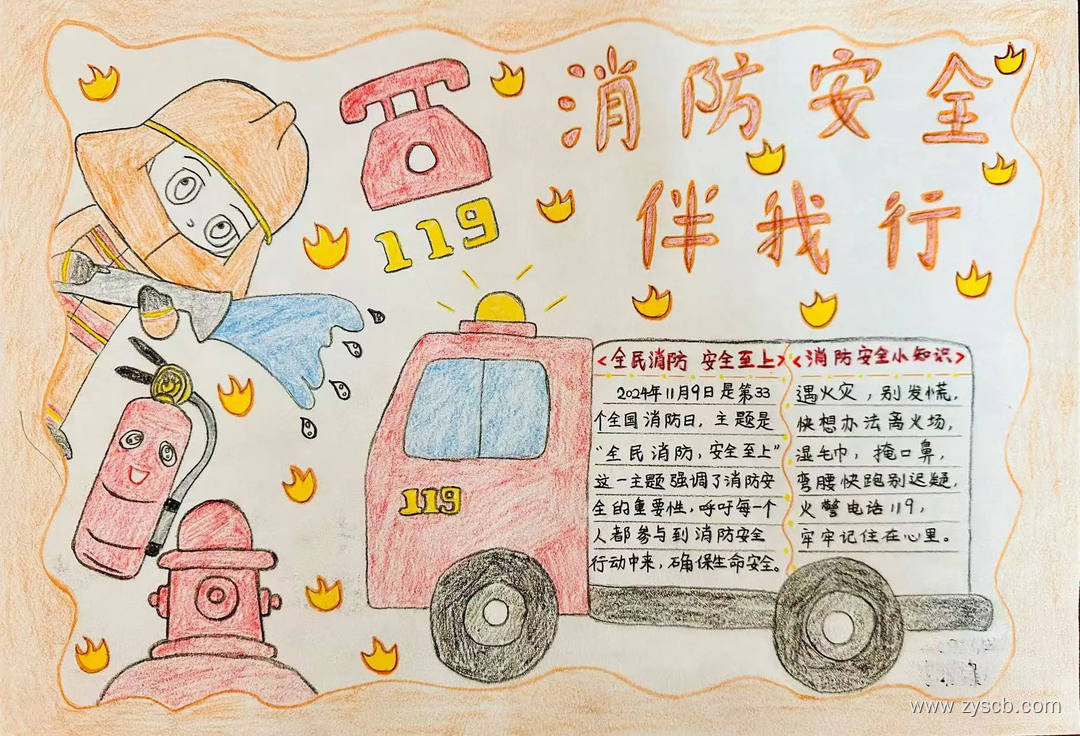 消防安全
伴我行
119
119
<全民消防 安全至上>
2024年11月9日是第33
个全国消防日，主题是
“全民消防，安全至上”
这一主题强调了消防安
全的重要性，呼吁每一个
人都参与到消防安全
行动中来，确保生命安全。
<消防安全小知识>
遇火灾，别发慌，
快想办法离火场，
湿毛巾，掩口鼻，
弯腰快跑别迟疑，
火警电话119，
牢牢记住在心里。
www.zyscb.com